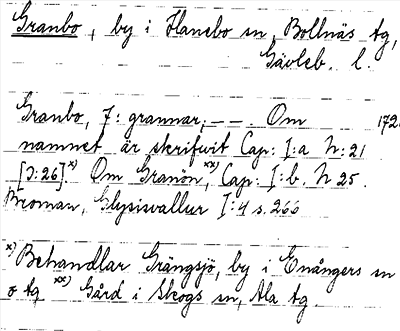 Granbo, by i Hanebo sn, Bollnäs tg,
Gävleb. l.
Granbo, 7: grannar; — — . Om 172
namnet är skrifwit Cap: I: a N: 21
[I: 26].x) Om Granön,xx) Cap: I: b. N 25.
Broman, Glysisvallur I: 4 s. 266
x) Behandlar Grängsjö, by i Enångers sn
o tg xx) Gård i Skogs sn, Ala tg.